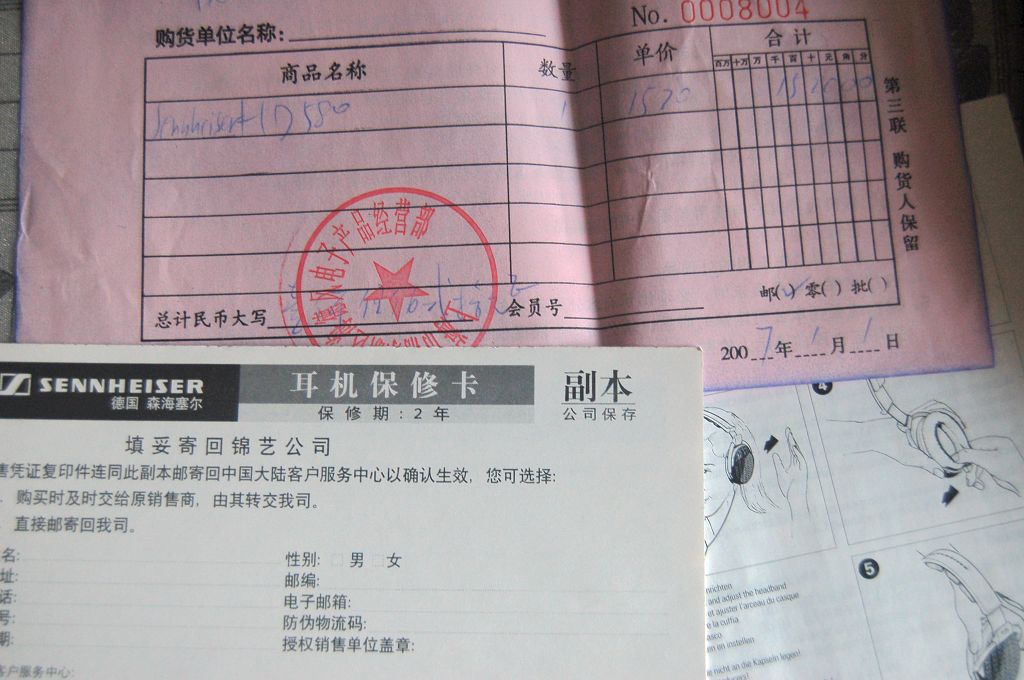 No. 0008004
购货单位名称:
商品名称 数量 单价 合计
百万 十万 万 千 百 十 元 角 分
HD580 1 1520
第三联 购货人保留
电子产品经营部
总计民币大写 会员号
邮( ) 零( ) 批( )
2007年1月1日
SENNHEISER
德国 森海塞尔
耳机保修卡
保修期:2年
副本
公司保存
填妥寄回锦艺公司
售凭证复印件连同此副本邮寄回中国大陆客户服务中心以确认生效, 您可选择:
. 购买时及时交给原销售商, 由其转交我司。
. 直接邮寄回我司。
名:
性别: □ 男 □ 女
址:
邮编:
话:
电子邮箱:
号:
防伪物流码:
期:
授权销售单位盖章:
客户服务中心:
4
5
nrichten
and adjust the headband
et ajuster l'arceau du casque
e la cuffia
asco
en en instellen
nicht an die Kapseln legen!